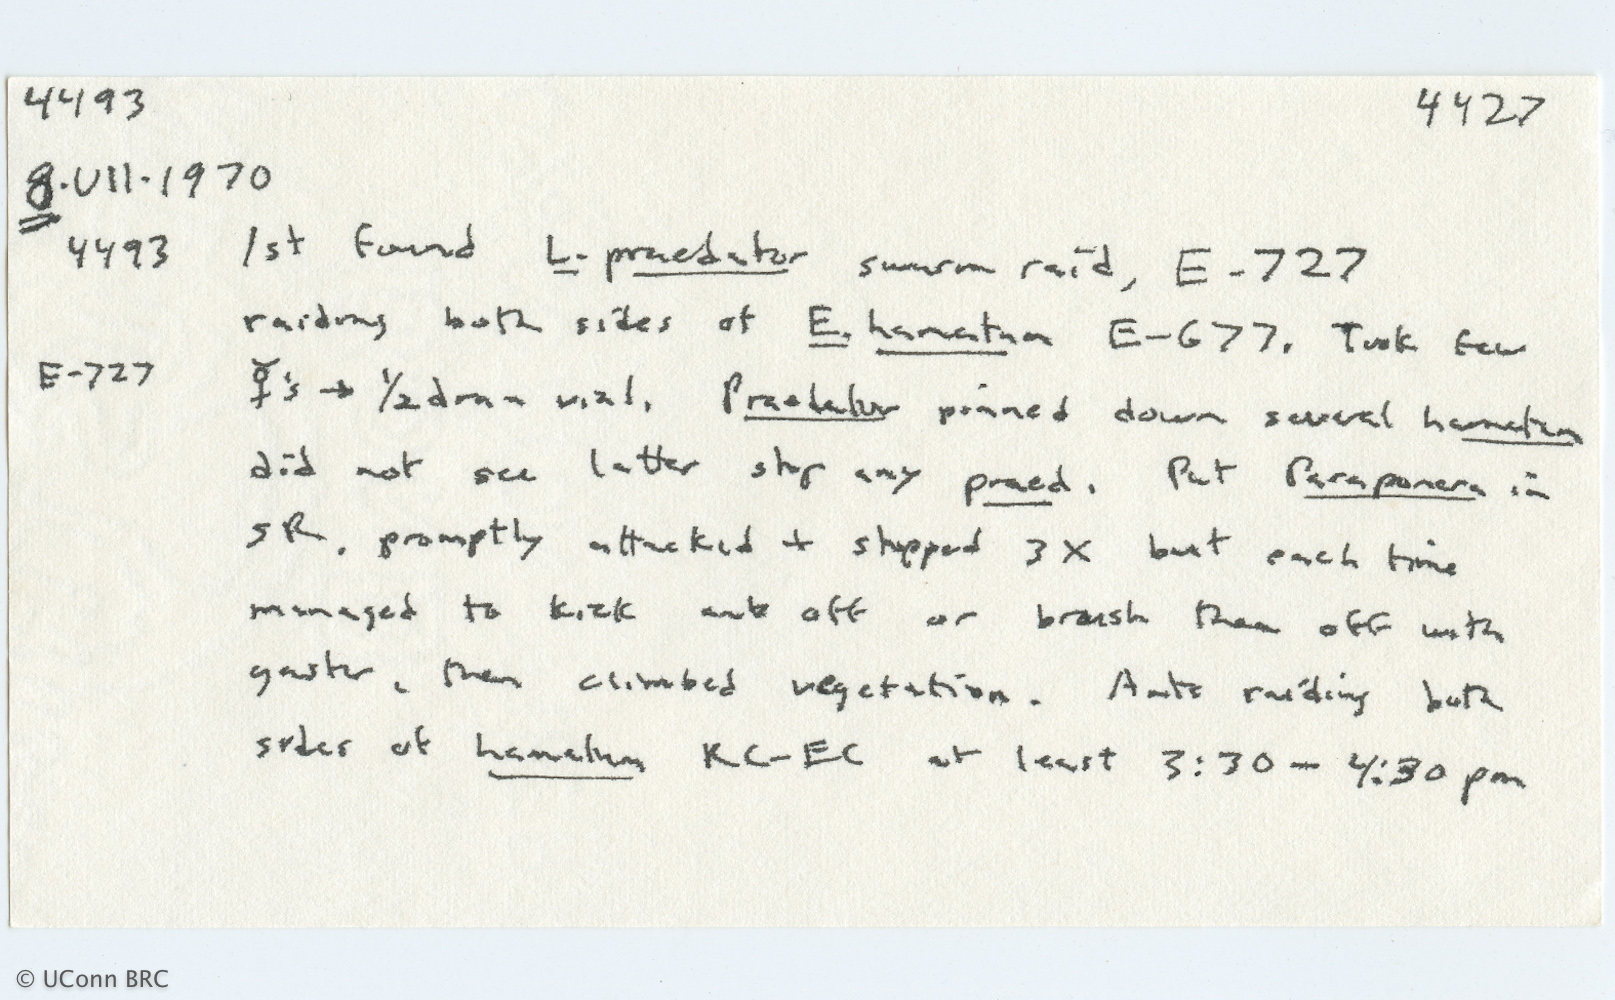 4493 4427
8.VII.1970
4493 1st found L. praedator swarm raid, E-727
raiding both sides of E. hamatum E-677. Took few
E-727 ☿'s → 1/2 dram vial. Praedator pinned down several hamatum
did not see latter stop any praed. Put Paraponera in
SR, promptly attacked + stopped 3X but each time
managed to kick ants off or brush them off with
gaster, then climbed vegetation. Ants raiding both
sides of hamatum RC-EC at least 3:30 - 4:30 pm
© UConn BRC